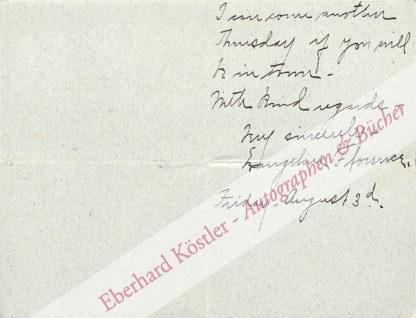 I can come another
Thursday if you will
be in town -
With kind regards -
Very sincerely -
Friday - August 3d.
Eberhard Köstler - Autographen & Bücher